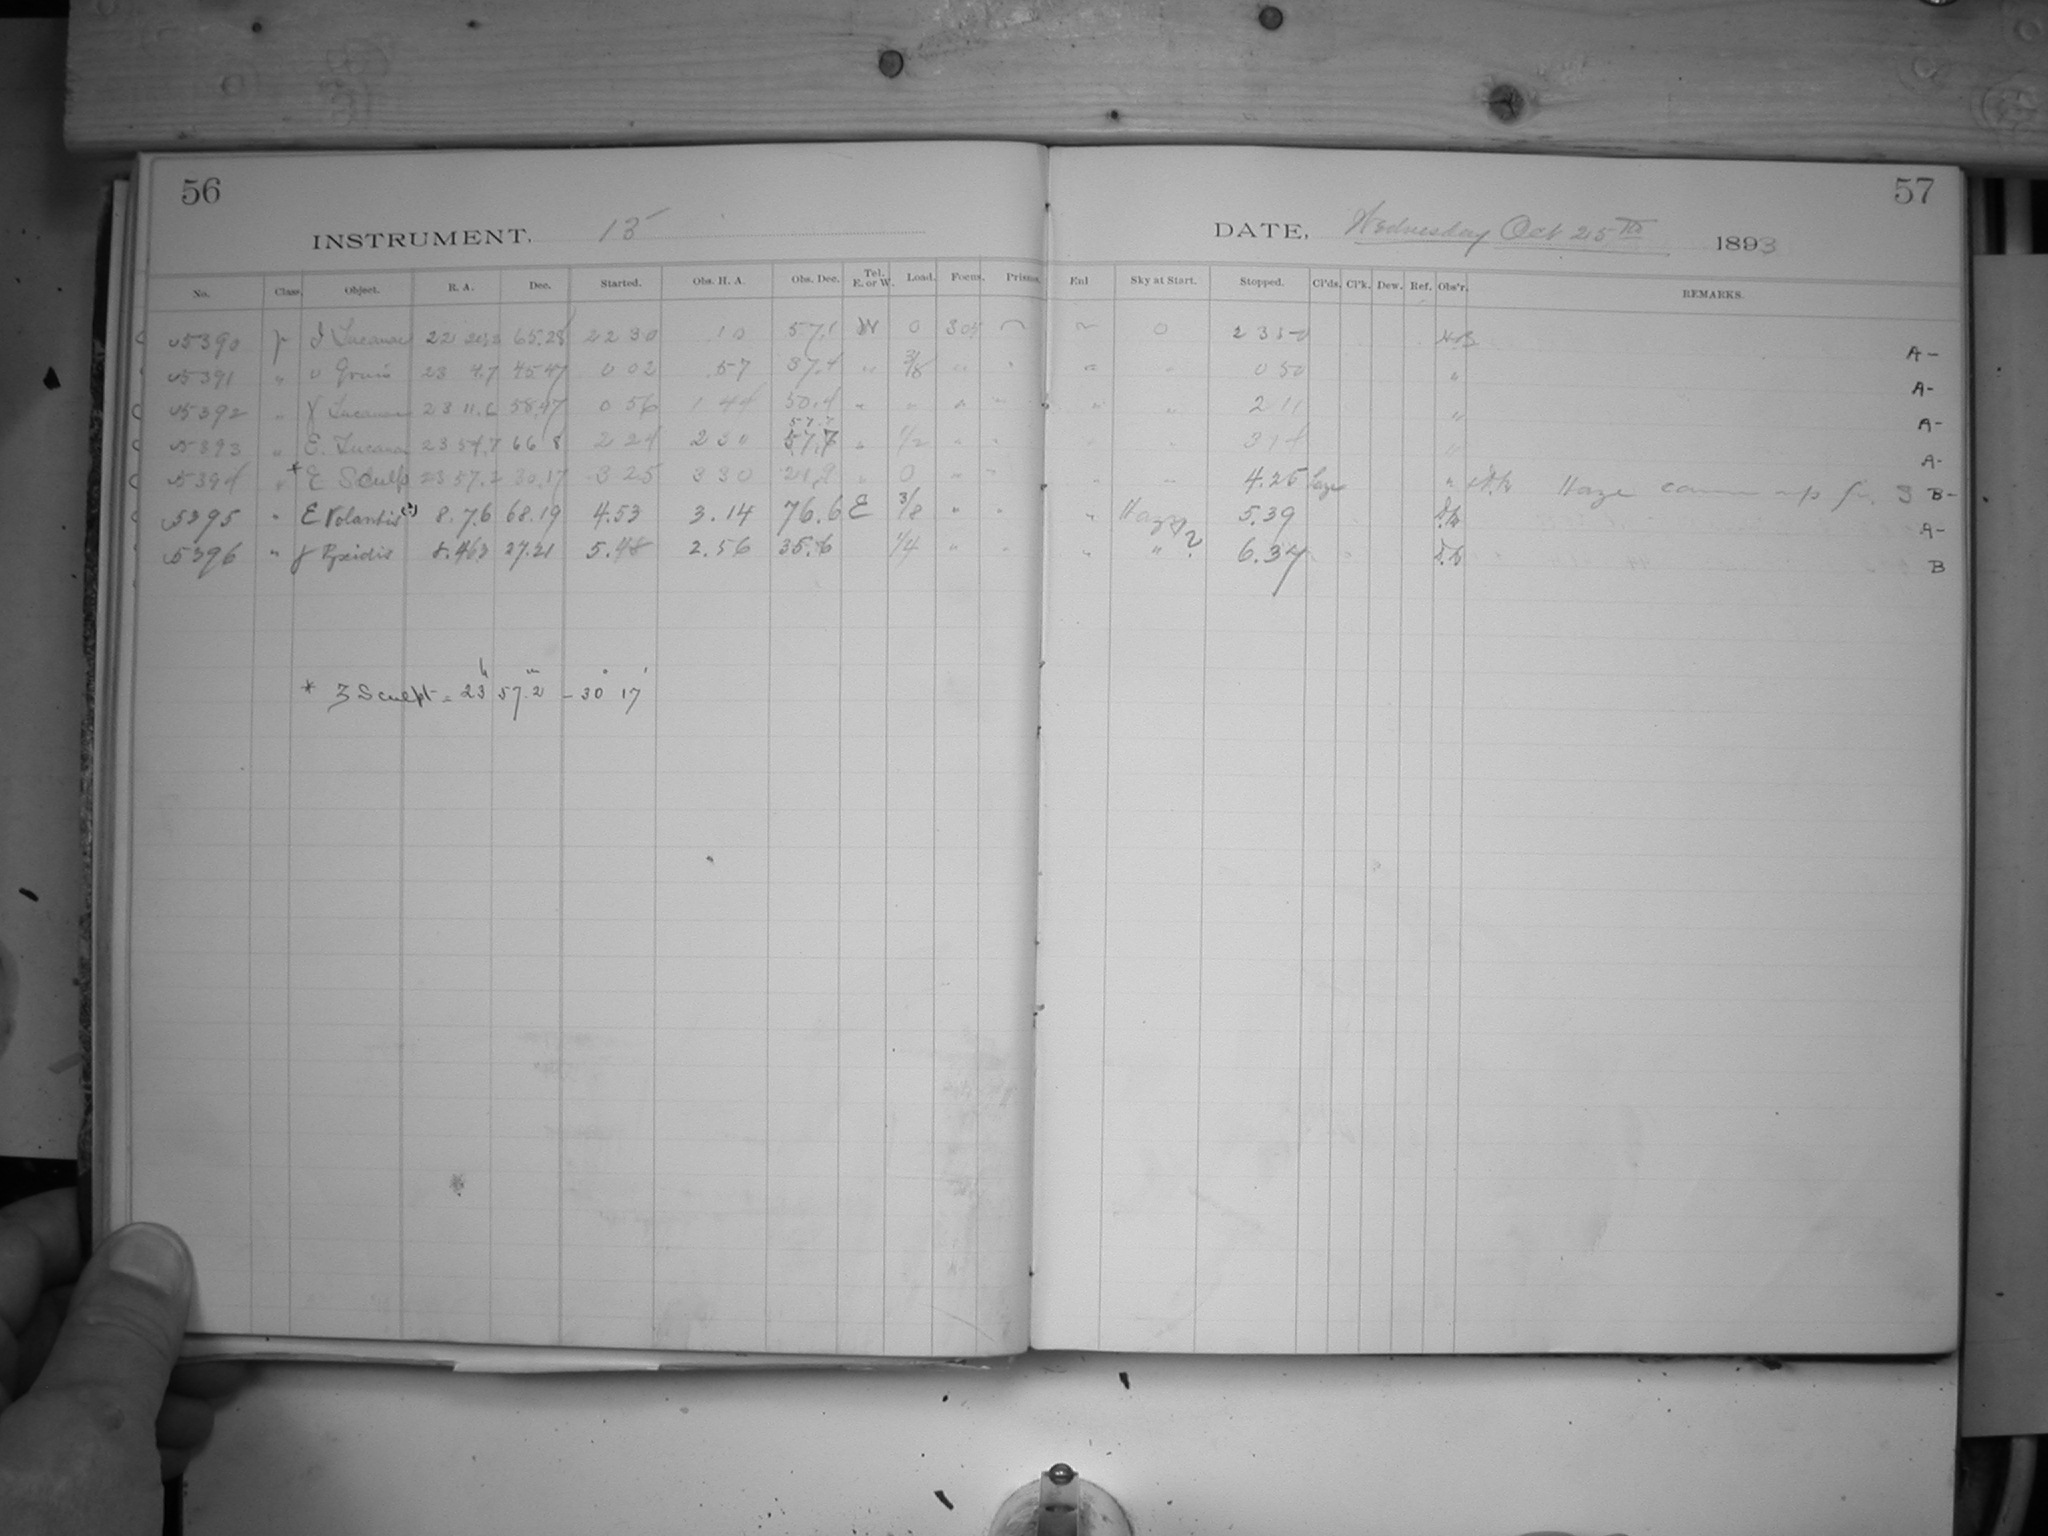 56
57
INSTRUMENT. 13
DATE, Wednesday Oct 25th 1893
No. Class. Object. R. A. Dec. Started. Obs. H. A. Obs. Dec. Tel. E. or W. Load. Focus. Prisms. Enl Sky at Start. Stopped. Cl'ds. Cl'k. Dew. Ref. Obs'r. REMARKS.
5390 Tucanae 22 65.28 22 30 10 57.1 W 0 0 A-
5391 " υ Gruis 23 4.7 0 02 .57 37.4 " 3/8 " " " " 0 50 " A-
5392 " γ Tucanae 23 11.6 58.47 0 56 1 44 50.4 " " " " " " 2 11 " A-
5393 " E. Tucanae 23 54.7 66 8 2 24 2 30 57.7 " 1/2 " " " " " A-
5394 " * E Sculp 23 57.2 30.17 3 25 3 30 " 0 " " " " 4.25 haze " Haze came up B-
5395 " E Volantis 8. 7.6 68.19 4.53 3.14 76.6 E 3/8 " " " Haze 5.39 A-
5396 " γ Pyxidis 27.21 5.48 2.56 35.6 1/4 " " " " 6.34 B
* ζ Sculpt = 23h 57.2m - 30° 17'